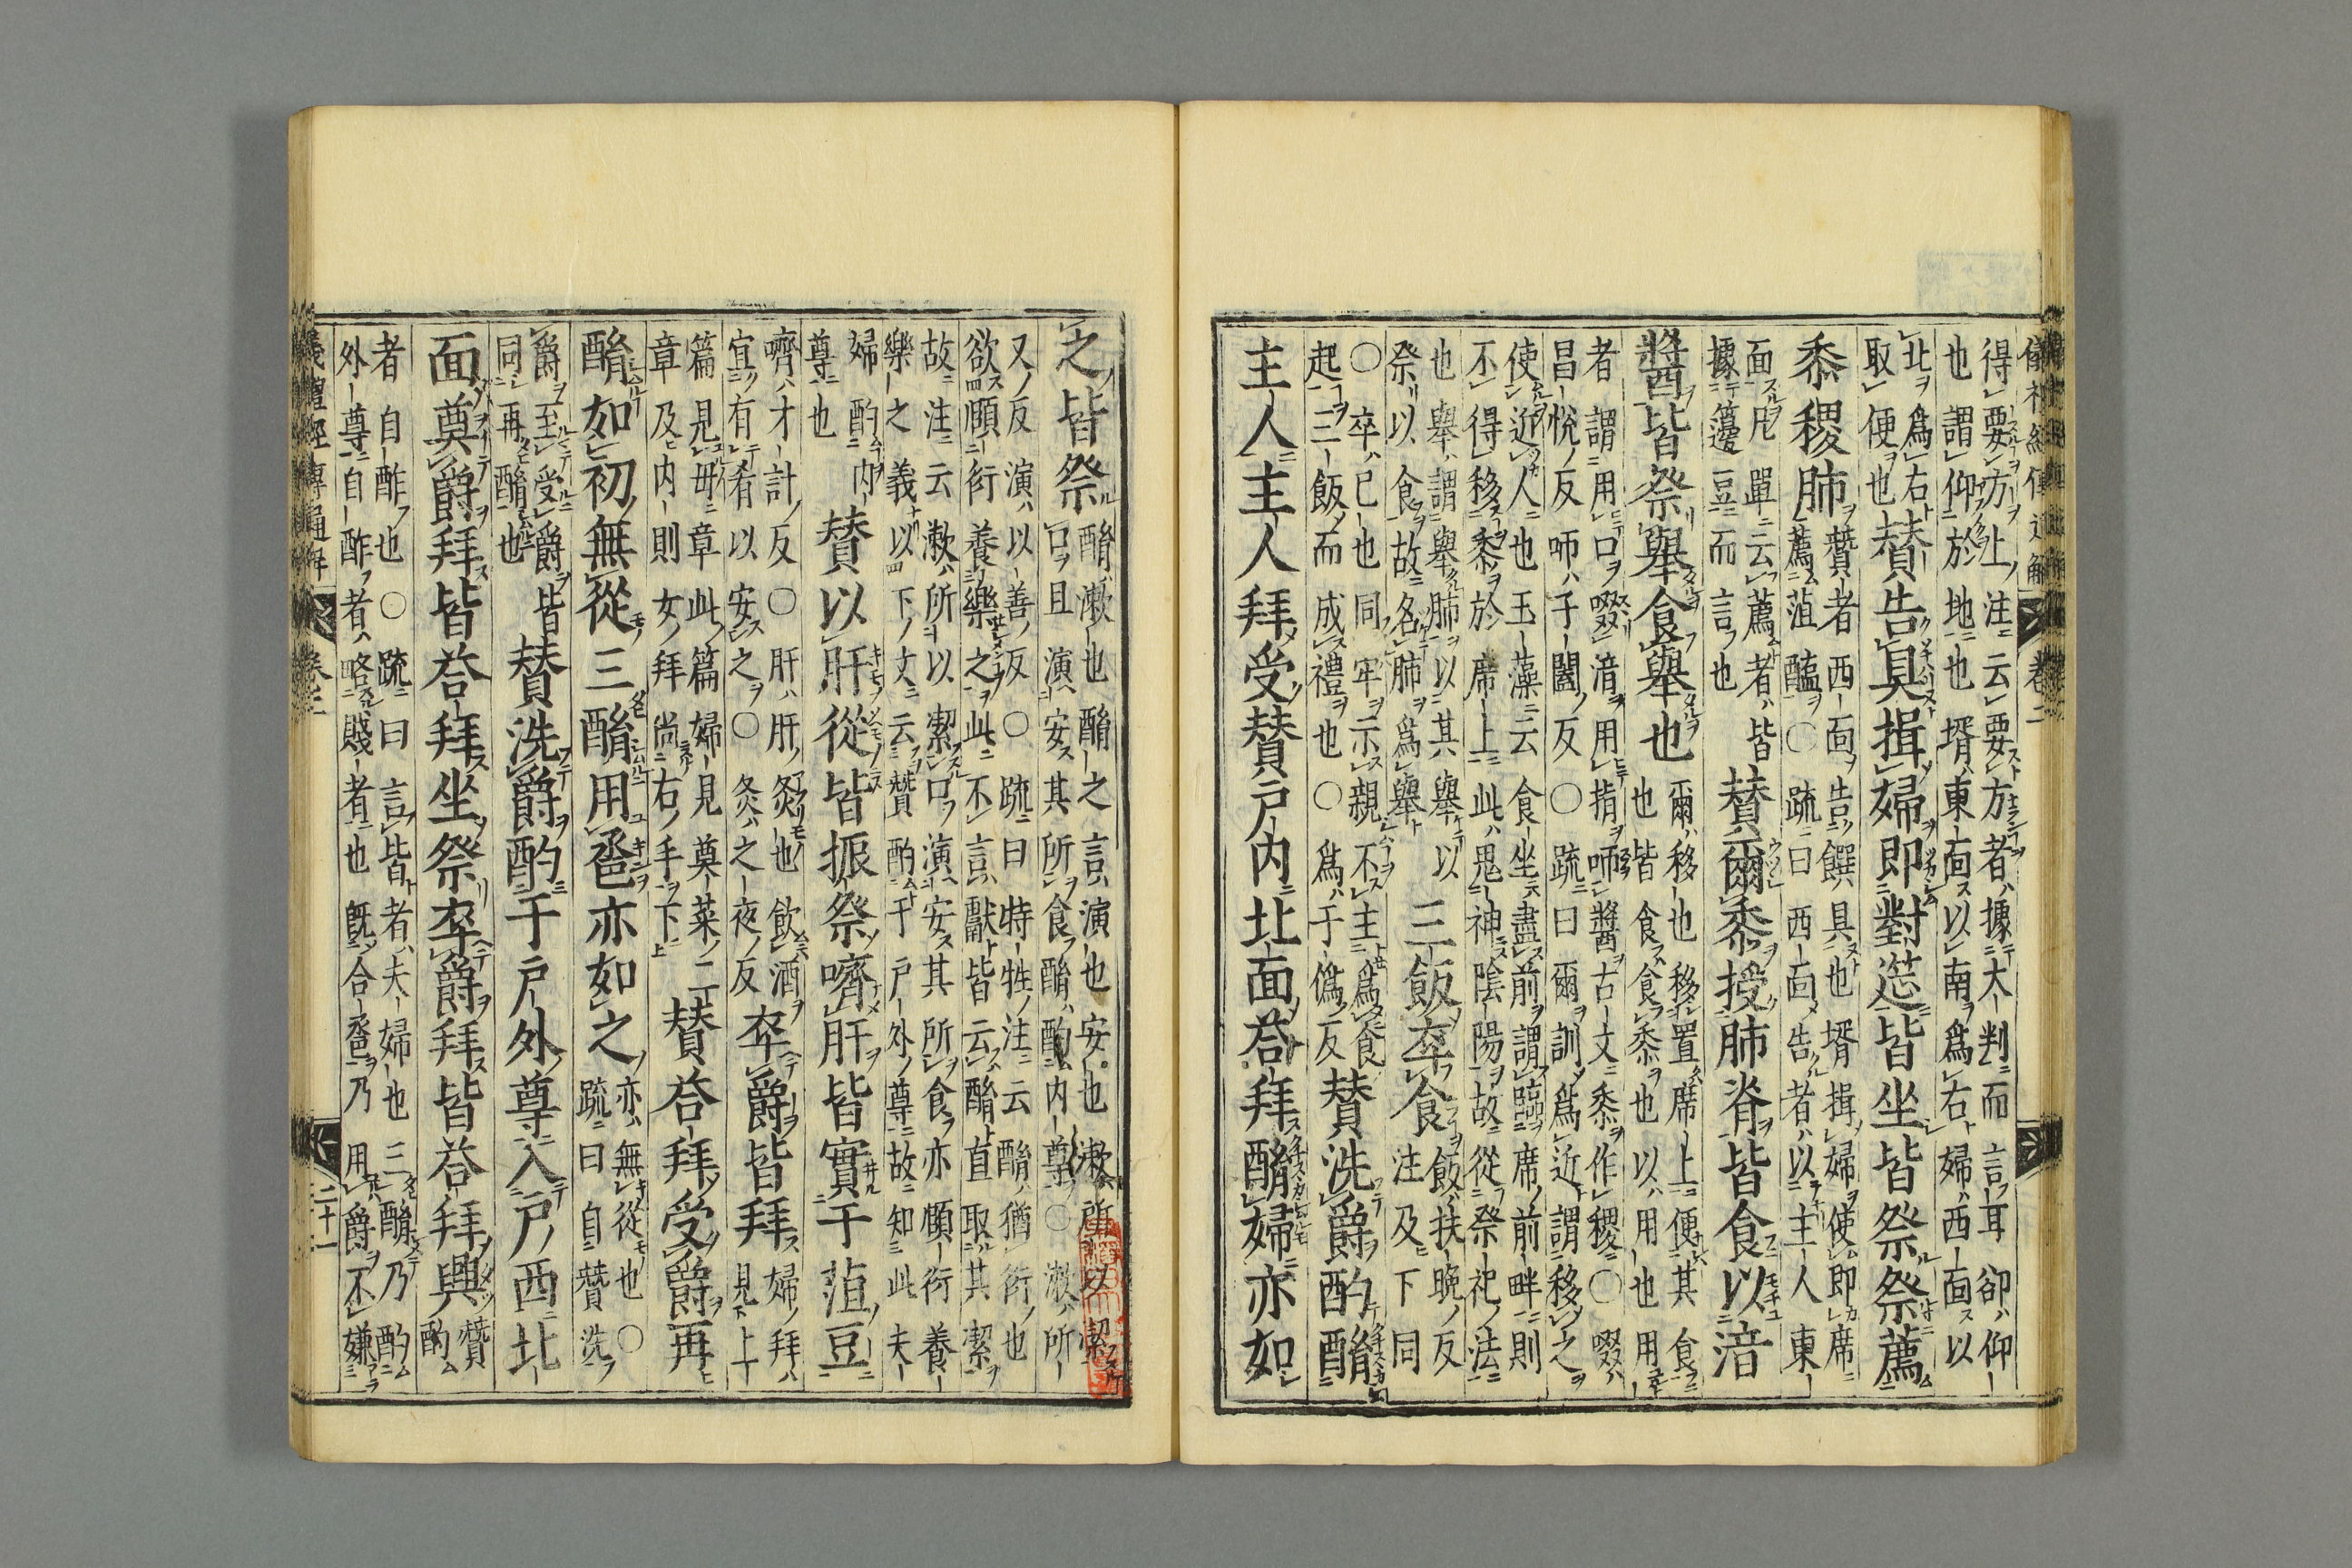 儀禮經傳通解 卷二
得要方止注云要方者據大判而言耳卻仰
也謂仰於地也壻東面以南爲右婦西面以
北爲右
取便也
贊告具揖婦即對筵皆坐皆祭祭薦
黍稷肺
贊者西面告饌具也壻揖婦使即席
薦菹醢○疏曰西面告者以主人東
面凥單云薦者皆
據籩豆而言也
贊爾黍授肺脊皆食以湆
醬皆祭舉食舉也
爾移也移置席上便其食
也皆食食黍也以用也用
者謂用口啜湆用指㕮醬古文黍作稷○啜
昌悅反㕮子闔反○疏曰爾訓爲近謂移之
使近人也玉藻云食坐盡前謂臨席前畔則
不得移黍於席上此鬼神陰陽故從祭祀法
也舉謂舉肺以其舉以
祭以食故名肺爲舉
三飯卒食
飯扶晚反
注及下同
○卒已也同牢示親不主爲食
起三飯而成禮也○爲于僞反
贊洗爵酌酳
主人主人拜受贊戶內北面荅拜酳婦亦如
之皆祭
酳漱也酳之言演也安也漱所以潔
口且演安其所食酳酌內尊○漱所
又反演以善反○疏曰特牲注云酳猶衍也
欲頤衍養樂之此不言獻皆云酳直取其潔
故注云漱所以潔口演安其所食亦頤衍養
樂之義以下文云贊酌于戶外尊故知此夫
婦酌內
尊也
贊以肝從皆振祭嚌肝皆實于菹豆
嚌才計反○肝肝炙也飲酒
宜有肴以安之○炙之夜反
卒爵皆拜
婦拜
見上
篇見毋章此篇婦見奠菜二
章及內則女拜尚右手
贊荅拜受爵再
酳如初無從三酳用巹亦如之
亦無從也○
疏曰自贊洗
爵至受爵皆
同再酳也
贊洗爵酌于戶外尊入戶西北
面奠爵拜皆荅拜坐祭卒爵拜皆荅拜興
贊
酌
者自酢也○疏曰言皆者夫婦也三酳乃酌
外尊自酢者略賤者也既合巹乃用爵不嫌
儀禮經傳通解 卷二 二十一